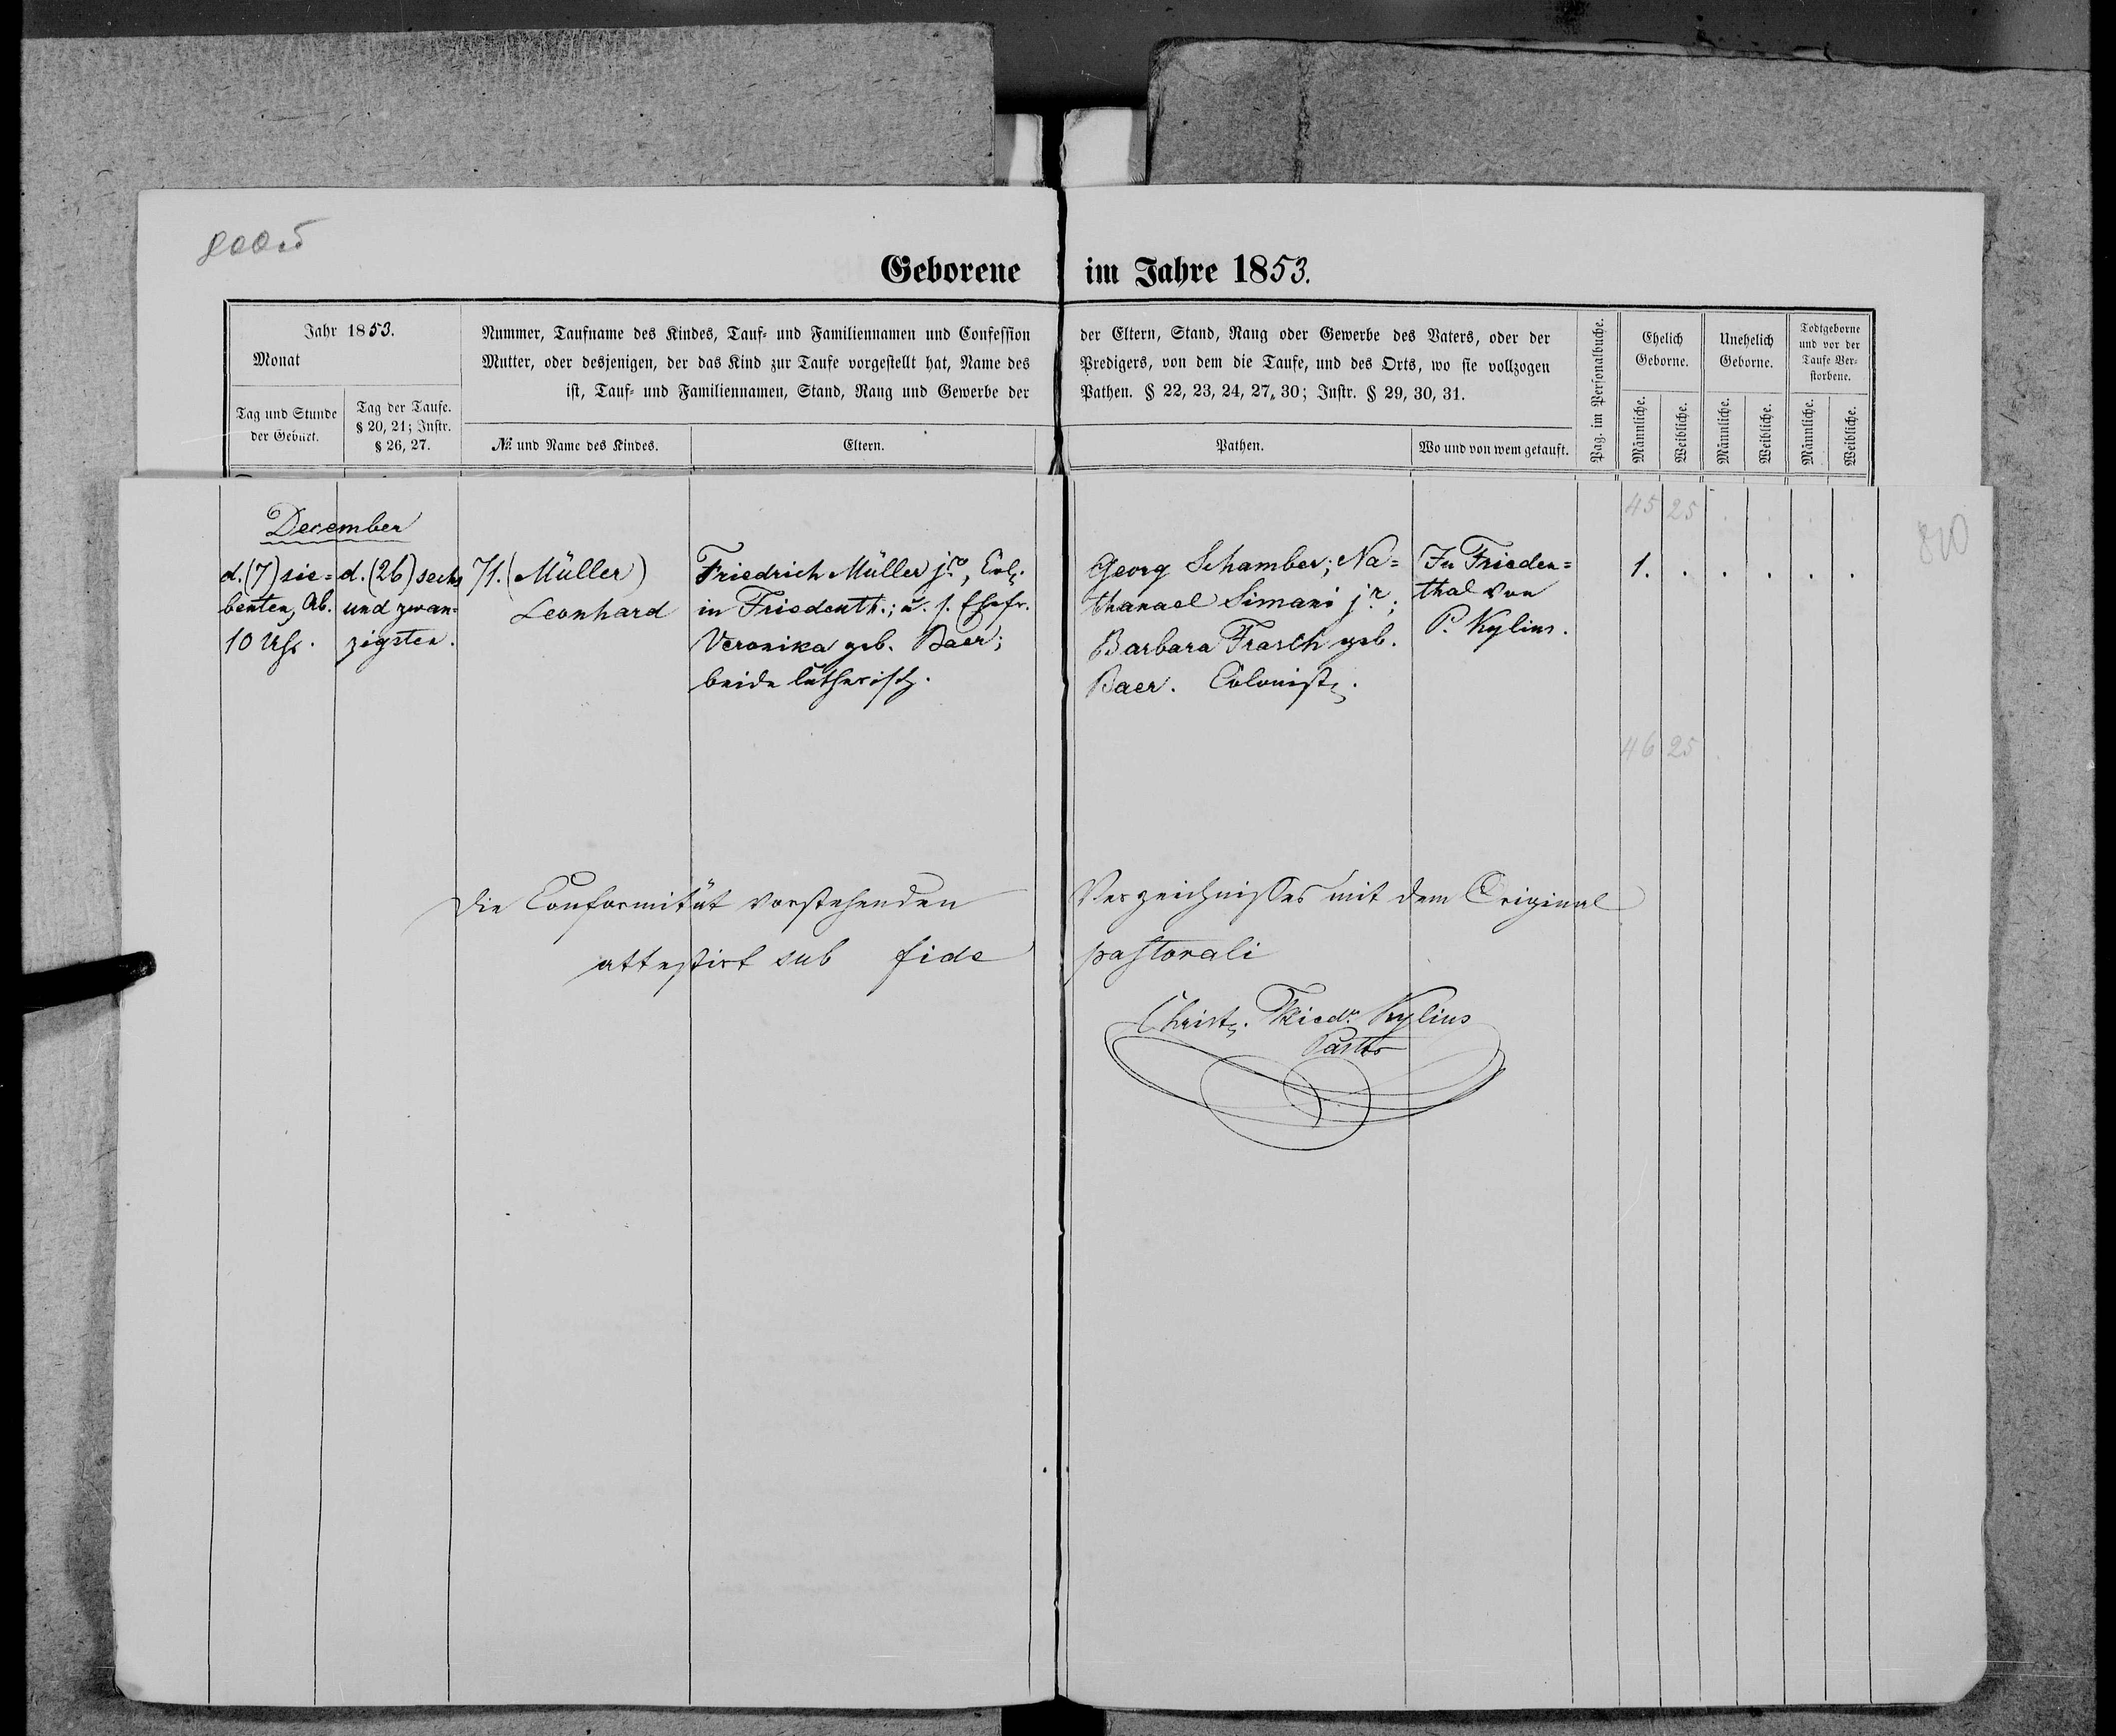 Geborene im Jahre 1853.
Jahr 1853.
Monat
Tag und Stunde
der Geburt.
Tag der Taufe.
§ 20, 21; Instr.
§ 26, 27.
Nummer, Taufname des Kindes, Tauf- und Familiennamen und Confession
Mutter, oder desjenigen, der das Kind zur Taufe vorgestellt hat, Name des
ist, Tauf- und Familiennamen, Stand, Rang und Gewerbe der
№ und Name des Kindes.
Eltern.
der Eltern, Stand, Rang oder Gewerbe des Vaters, oder der
Predigers, von dem die Taufe, und des Orts, wo sie vollzogen
Pathen. § 22, 23, 24, 27, 30; Instr. § 29, 30, 31.
Pathen.
Wo und von wem getauft.
Pag. im Personalbuche.
Ehelich
Geborne.
Männliche.
Weibliche.
Unehelich
Geborne.
Männliche.
Weibliche.
Todtgeborne
und vor der
Taufe Ver-
storbene.
Männliche.
Weibliche.
45 25
December
d. (7) sie=
benten, Ab.
10 Uhr.
d. (26) sechs
und zwan=
zigsten.
71. (Müller)
Leonhard
Friedrich Müller jr., Col.
in Friedenth.; u. s. Ehefr.
Veronika geb. Baer;
beide lutherisch.
Georg Schamber; Na=
thanael Simani jr.;
Barbara Frasch geb.
Baer. Colonist.
In Frieden=
thal von
P. Kylius.
1. . . . . .
810
46 25
Die Conformität vorstehenden Verzeichnisses mit dem Original
attestirt sub fide pastorali
Christ. Friedr. Kylius
Pastor